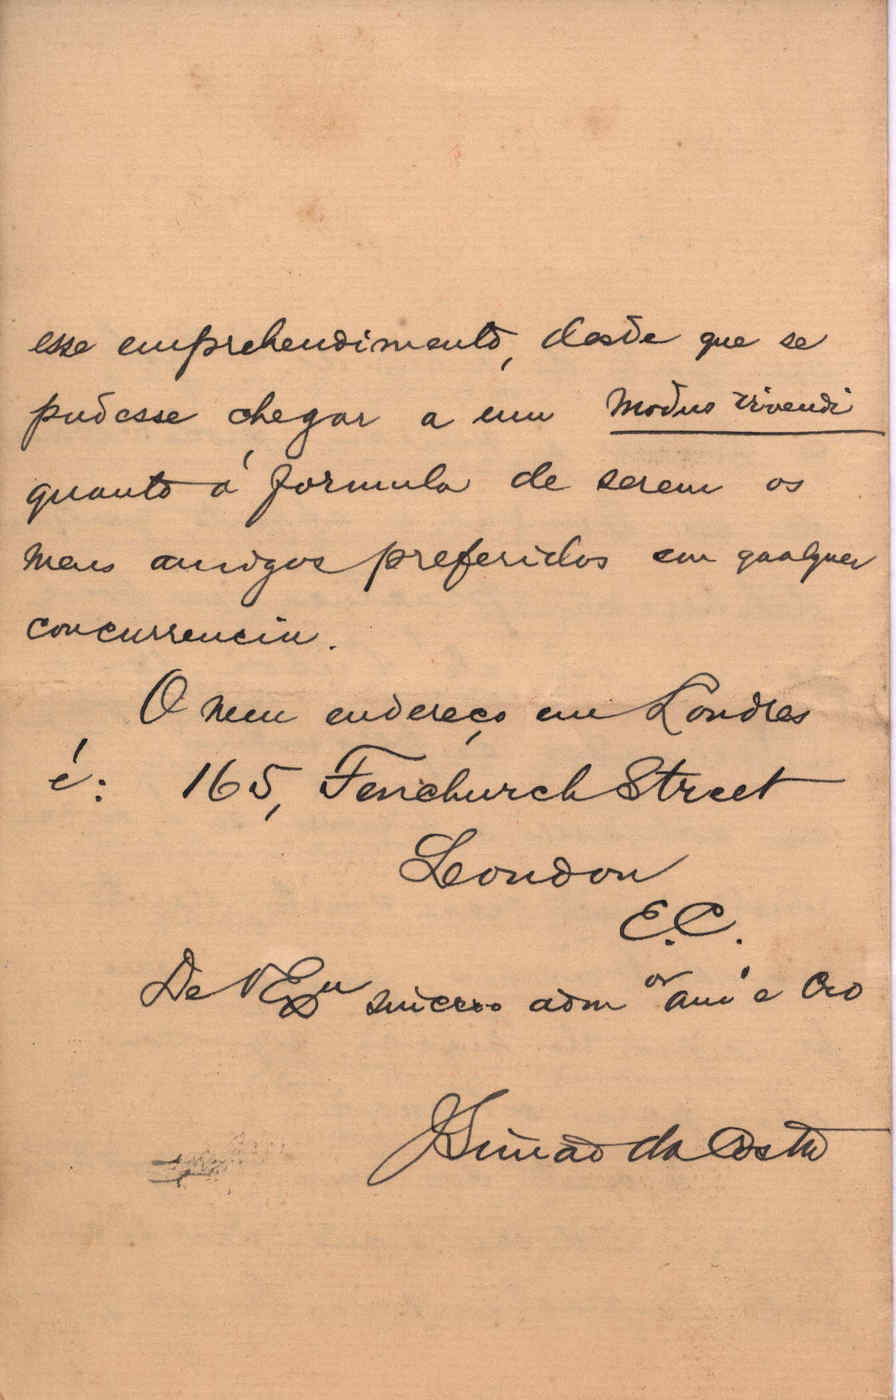 esse emprehendimento, desde que se
pudesse chegar a um modus vivendi
quanto á formula de serem os
meus amigos preferidos em qualquer
concurrencia.
O meu endereço em Londres
é: 165, Fenchurch Street
London
E.C.
De VExa sincero admor amo e Cro
JSimão da Costa